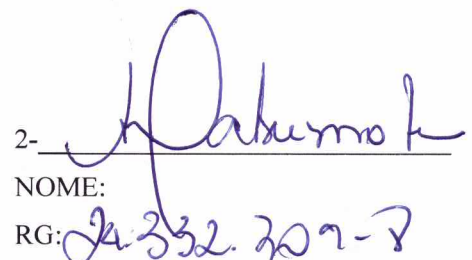 2-
NOME:
RG: 24.332.309-8